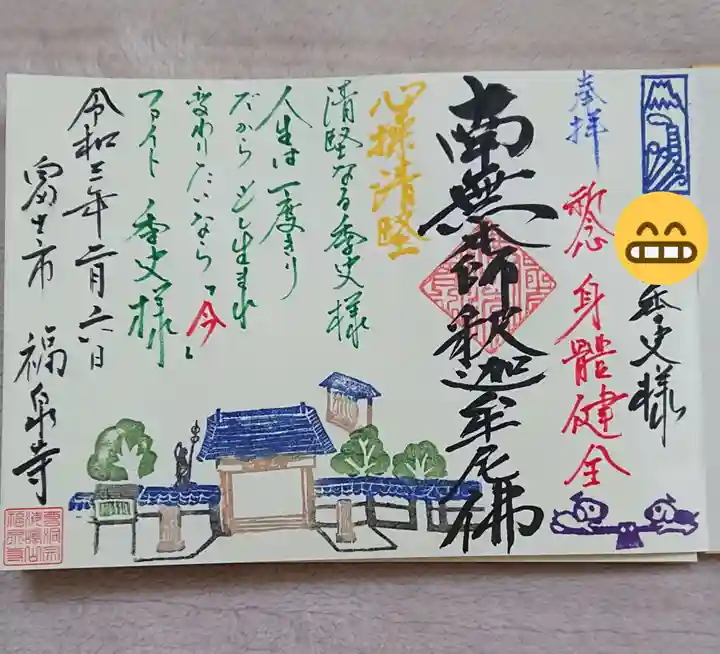 季史様
祈念 身體健全
奉拝
南無本師釈迦牟尼佛
心操清堅
清堅なる季史様
人生は一度きり
だからもし生まれ
変わりたいなら「今」
ファイト 季史様
令和三年二月六日
富士市 福泉寺